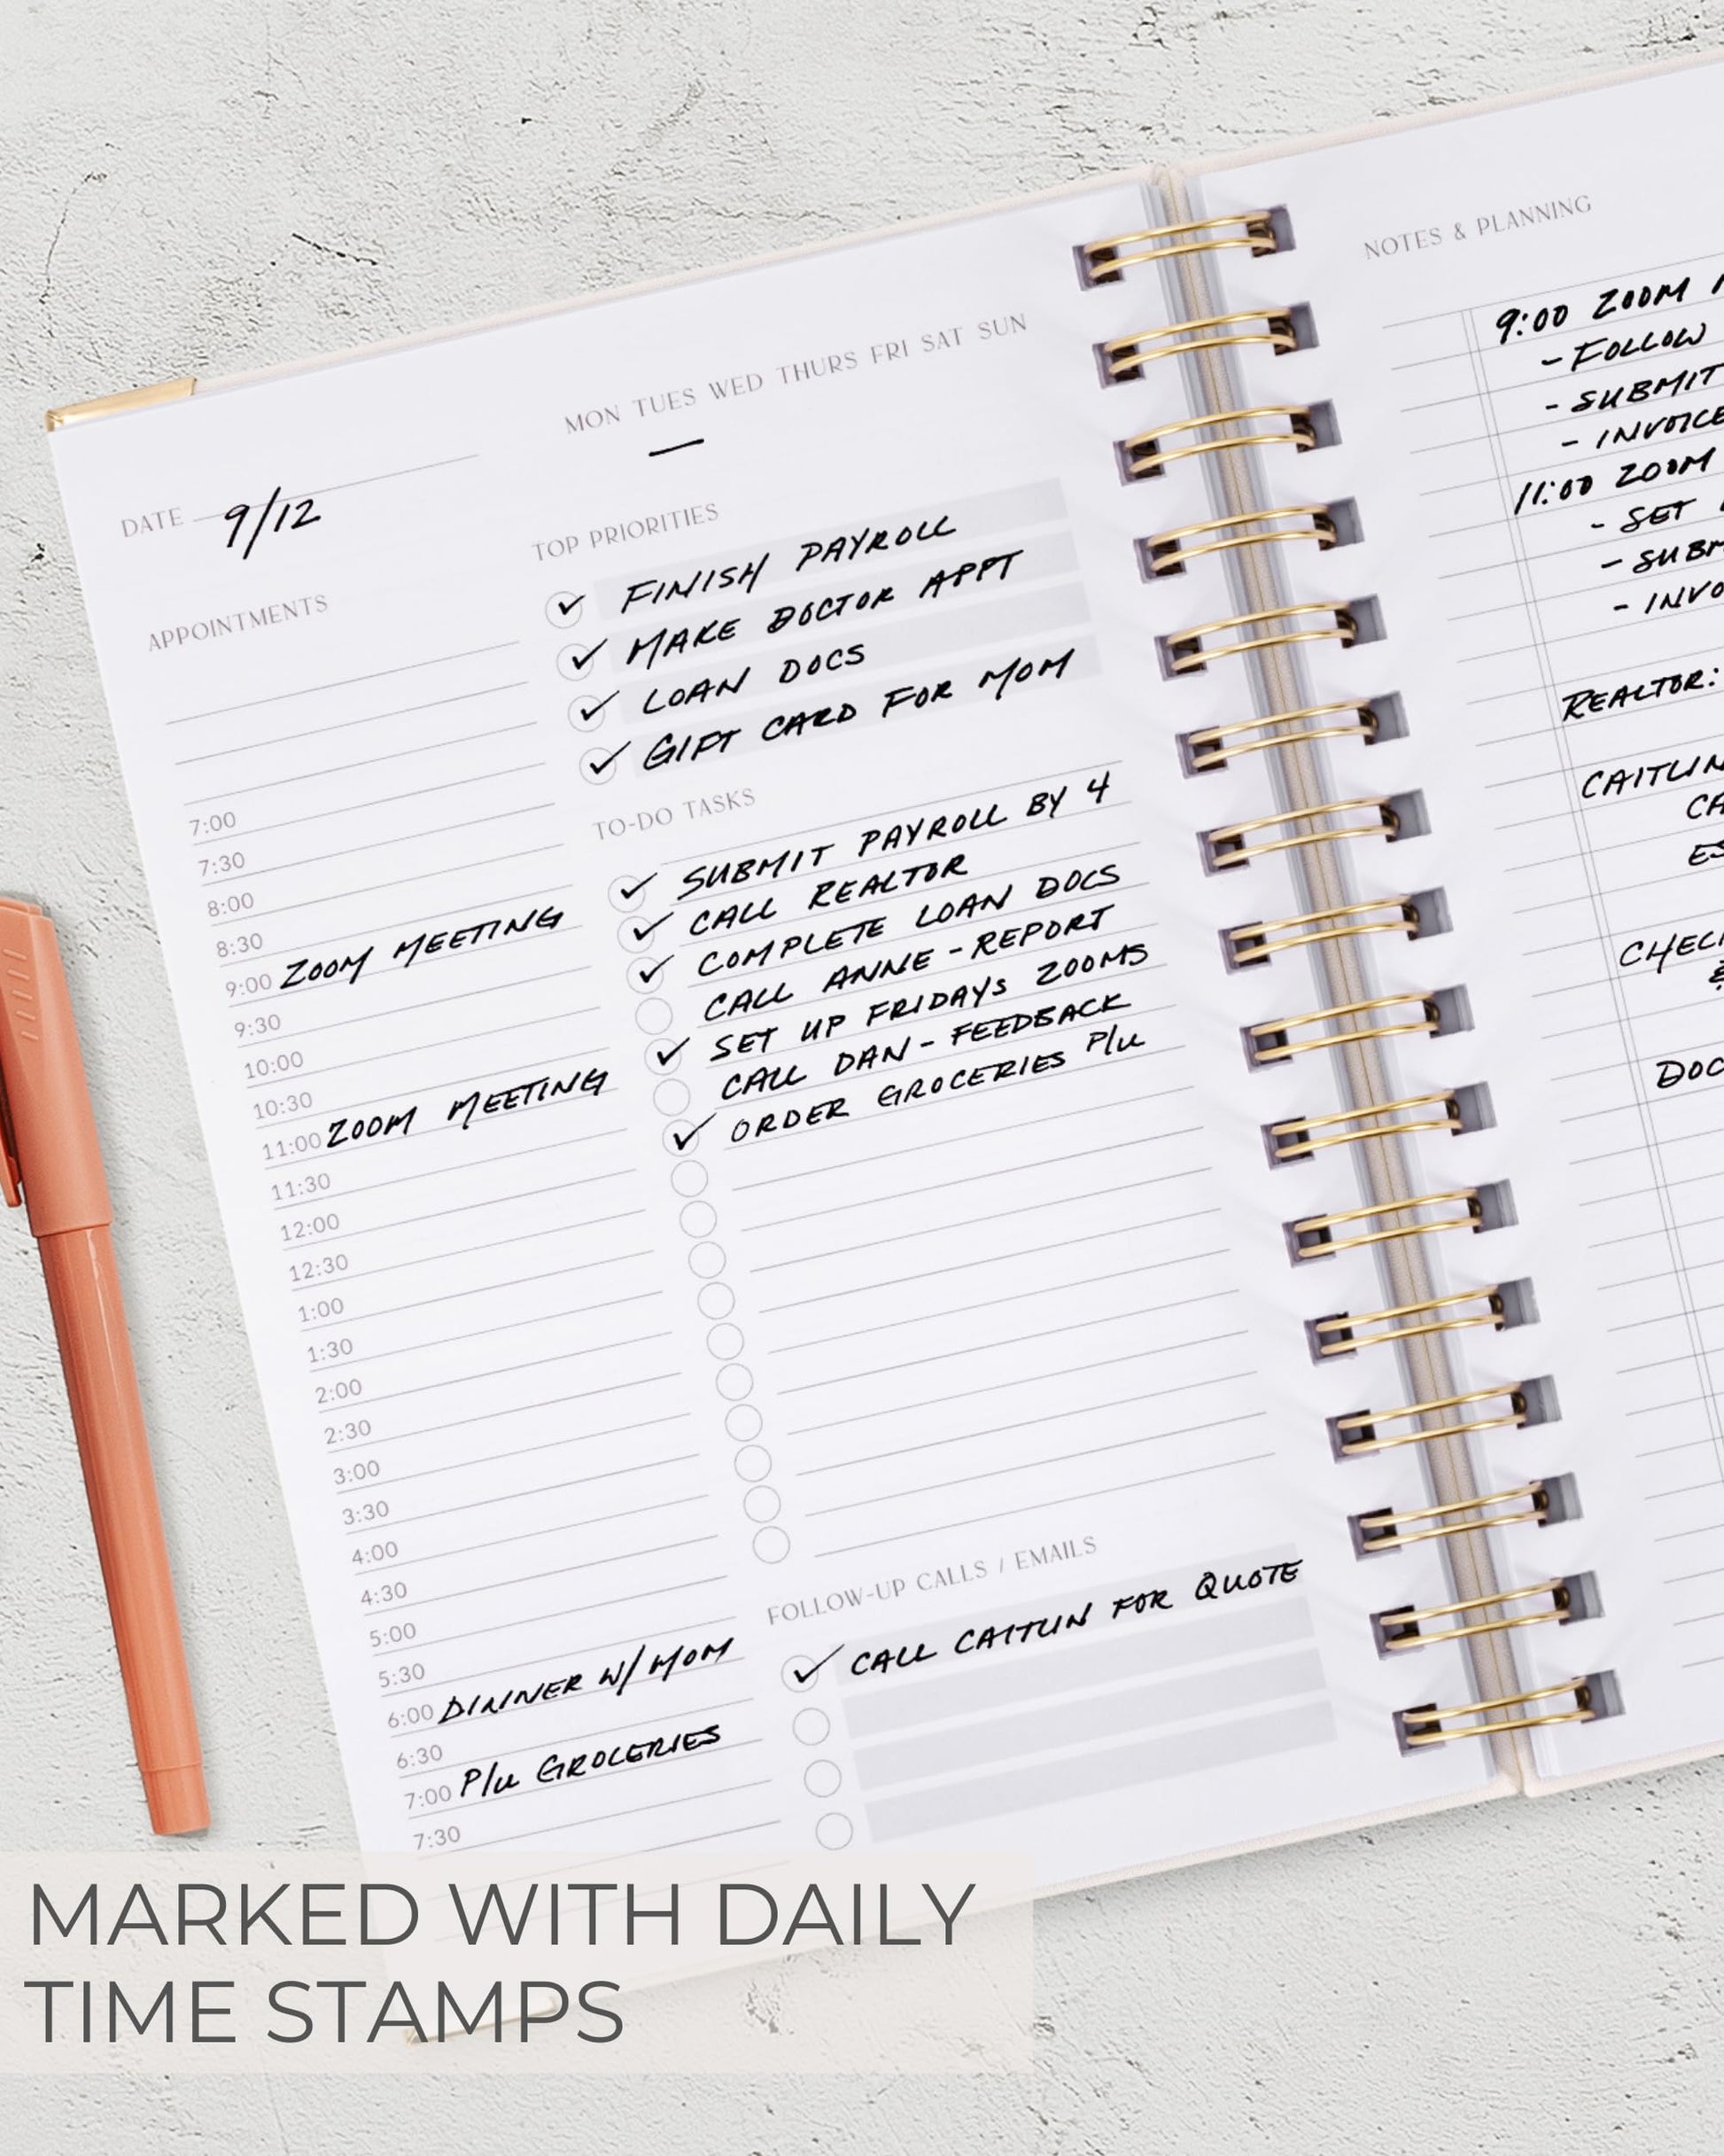 MON TUES WED THURS FRI SAT SUN
DATE 9/12
TOP PRIORITIES
FINISH PAYROLL
MAKE DOCTOR APPT
LOAN DOCS
GIFT CARD FOR MOM
TO-DO TASKS
SUBMIT PAYROLL BY 4
CALL REALTOR
COMPLETE LOAN DOCS
CALL ANNE - REPORT
SET UP FRIDAYS ZOOMS
CALL DAN - FEEDBACK
ORDER GROCERIES P/U
FOLLOW-UP CALLS / EMAILS
CALL CAITLIN FOR QUOTE
APPOINTMENTS
7:00
7:30
8:00
8:30
9:00 ZOOM MEETING
9:30
10:00
10:30
11:00 ZOOM MEETING
11:30
12:00
12:30
1:00
1:30
2:00
2:30
3:00
3:30
4:00
4:30
5:00
5:30
6:00 DINNER W/ MOM
6:30
7:00 P/U GROCERIES
7:30
NOTES & PLANNING
9:00 ZOOM
- FOLLOW
- SUBMIT
- INVOICE
11:00 ZOOM
- SET
- SUBM
- INVO
REALTOR:
CAITLIN
CA
ES
CHEC
&
DOC
MARKED WITH DAILY
TIME STAMPS